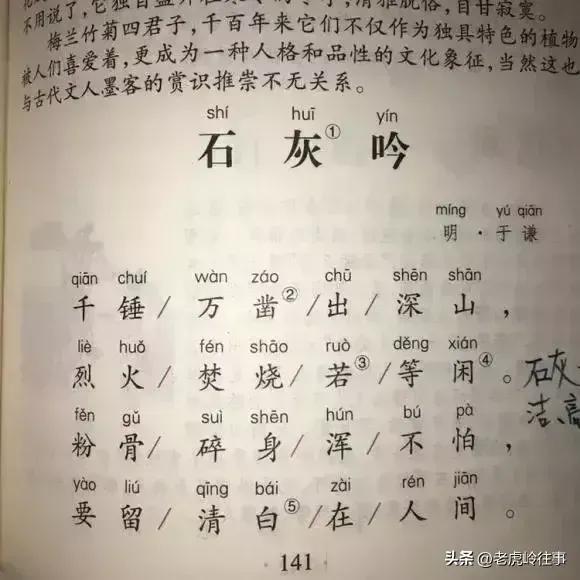 不用说了，它独自盛开在
清雅脱俗，自甘寂寞。
梅兰竹菊四君子，千百年来它们不仅作为独具特色的植物
被人们喜爱着，更成为一种人格和品性的文化象征，当然这也
与古代文人墨客的赏识推崇不无关系。
shí huī yín
石灰①吟
míng yú qiān
明·于谦
qiān chuí wàn záo chū shēn shān
千锤/万凿②/出/深山，
liè huǒ fén shāo ruò děng xián
烈火/焚烧/若③/等闲④。
石灰
洁、高
fěn gǔ suì shēn hún bú pà
粉骨/碎身/浑/不怕，
yào liú qīng bái zài rén jiān
要留/清白⑤/在/人间。
·141·
头条 @老虎岭往事